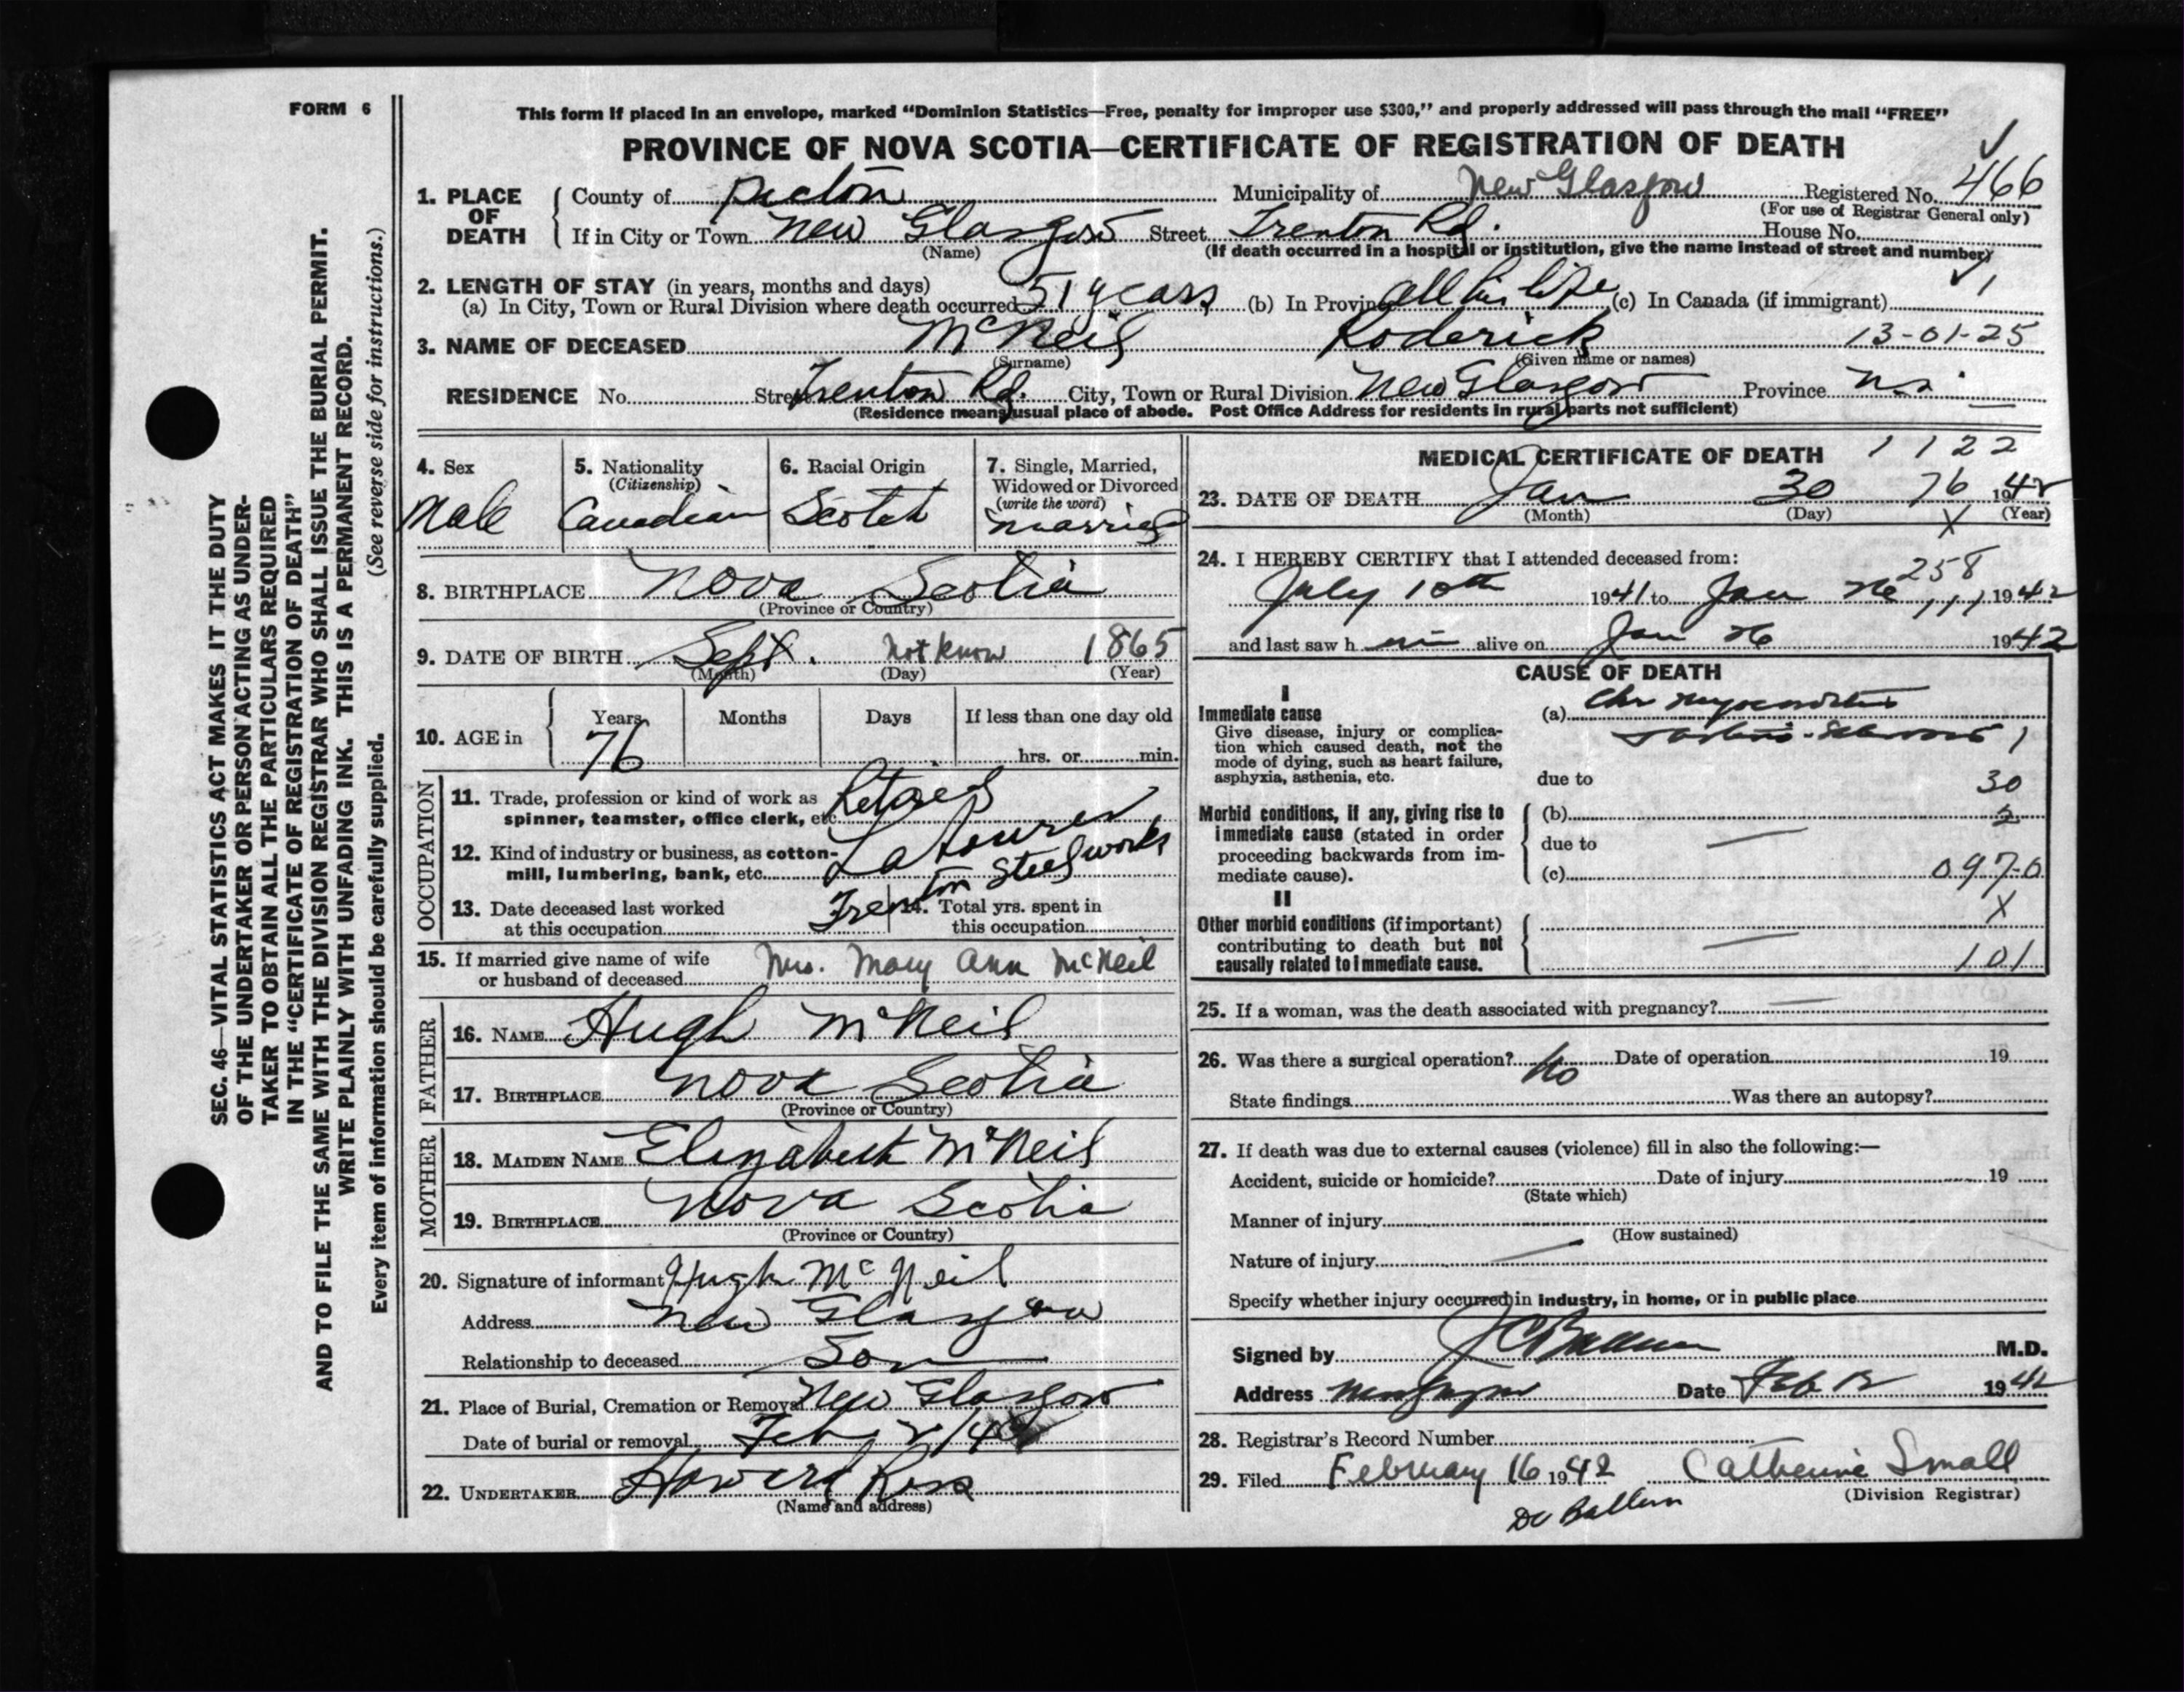 FORM 6
This form if placed in an envelope, marked “Dominion Statistics—Free, penalty for improper use $300,” and properly addressed will pass through the mail “FREE”
PROVINCE OF NOVA SCOTIA—CERTIFICATE OF REGISTRATION OF DEATH
SEC. 46—VITAL STATISTICS ACT MAKES IT THE DUTY
OF THE UNDERTAKER OR PERSON ACTING AS UNDER-
TAKER TO OBTAIN ALL THE PARTICULARS REQUIRED
IN THE “CERTIFICATE OF REGISTRATION OF DEATH”
AND TO FILE THE SAME WITH THE DIVISION REGISTRAR WHO SHALL ISSUE THE BURIAL PERMIT.
WRITE PLAINLY WITH UNFADING INK. THIS IS A PERMANENT RECORD.
Every item of information should be carefully supplied. (See reverse side for instructions.)
1. PLACE OF DEATH County of Pictou Municipality of New Glasgow Registered No. 466
(For use of Registrar General only)
If in City or Town New Glasgow Street Trenton Rd. House No.
(Name) (If death occurred in a hospital or institution, give the name instead of street and number)
2. LENGTH OF STAY (in years, months and days)
(a) In City, Town or Rural Division where death occurred 51 years (b) In Province all his life (c) In Canada (if immigrant) 1
3. NAME OF DECEASED McNeil Roderick 13-01-25
(Surname) (Given name or names)
RESIDENCE No. Street Trenton Rd. City, Town or Rural Division New Glasgow Province N.S.
(Residence means usual place of abode. Post Office Address for residents in rural parts not sufficient)
4. Sex
Male
5. Nationality
(Citizenship)
Canadian
6. Racial Origin
Scotch
7. Single, Married,
Widowed or Divorced
(write the word)
married
8. BIRTHPLACE Nova Scotia
(Province or Country)
9. DATE OF BIRTH Sept. Not Know 1865
(Month) (Day) (Year)
10. AGE in Years Months Days If less than one day old
76 hrs. or min.
OCCUPATION
11. Trade, profession or kind of work as
spinner, teamster, office clerk, etc. Retired
Labourer
12. Kind of industry or business, as cotton-
mill, lumbering, bank, etc. Trenton Steel works
13. Date deceased last worked
at this occupation
14. Total yrs. spent in
this occupation
15. If married give name of wife
or husband of deceased Mrs. Mary Ann McNeil
FATHER
16. NAME Hugh McNeil
17. BIRTHPLACE Nova Scotia
(Province or Country)
MOTHER
18. MAIDEN NAME Elizabeth McNeil
19. BIRTHPLACE Nova Scotia
(Province or Country)
20. Signature of informant Hugh McNeil
Address New Glasgow
Relationship to deceased Son
21. Place of Burial, Cremation or Removal New Glasgow
Date of burial or removal Feb 2/42
22. UNDERTAKER Howard Ross
(Name and address)
MEDICAL CERTIFICATE OF DEATH 1 1 2 2
23. DATE OF DEATH Jan 30 76 1942
(Month) (Day) X (Year)
24. I HEREBY CERTIFY that I attended deceased from:
258
July 10th 1941 to Jan 26 1942
and last saw him alive on Jan 26 1942
CAUSE OF DEATH
I
Immediate cause
Give disease, injury or complica-
tion which caused death, not the
mode of dying, such as heart failure,
asphyxia, asthenia, etc.
(a) Chr Myocarditis
1
due to
30
Morbid conditions, if any, giving rise to
immediate cause (stated in order
proceeding backwards from im-
mediate cause).
(b) 2
due to —
(c) 097-0
II
X
Other morbid conditions (if important)
contributing to death but not
causally related to immediate cause.
— 101
25. If a woman, was the death associated with pregnancy? —
26. Was there a surgical operation? No Date of operation 19
State findings Was there an autopsy?
27. If death was due to external causes (violence) fill in also the following:—
Accident, suicide or homicide? Date of injury 19
(State which)
Manner of injury
(How sustained)
Nature of injury —
Specify whether injury occurred in industry, in home, or in public place
Signed by M.D.
Address New Glasgow Date Feb 12 1942
28. Registrar’s Record Number
29. Filed February 16 1942 Catherine Small
(Division Registrar)